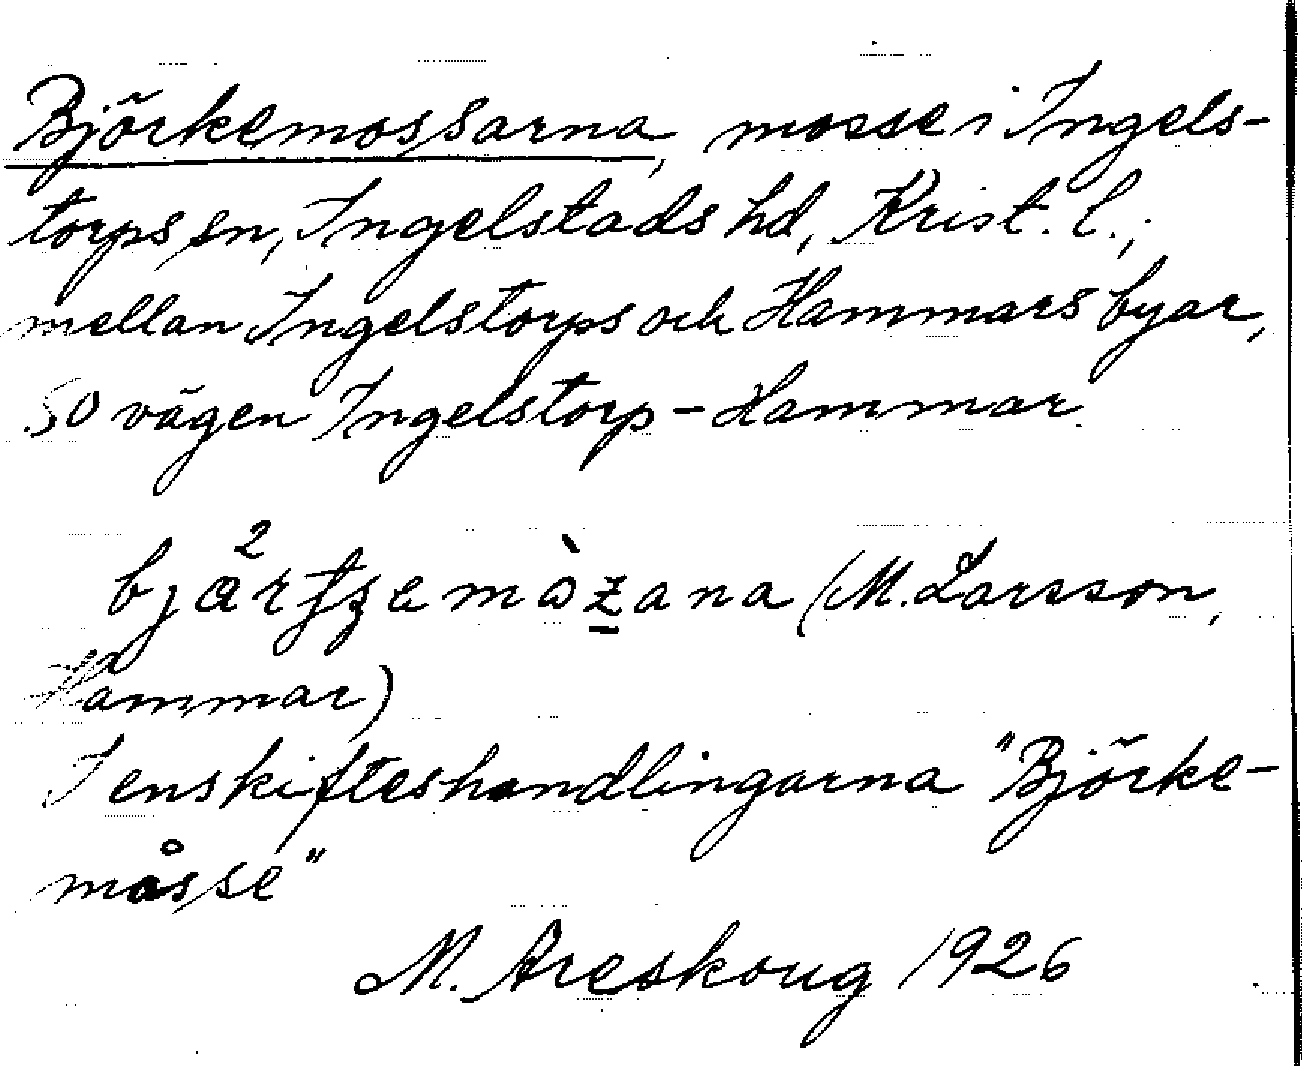 Björkemossarna, mosse i Ingels-
torps sn, Ingelstads hd, Krist. l.,
mellan Ingelstorps och Hammars byar,
SO vägen Ingelstorp - Hammar.
(M. Larsson,
Hammar)
I enskifteshandlingarna "Björke-
måsse"
M. Areskoug 1926